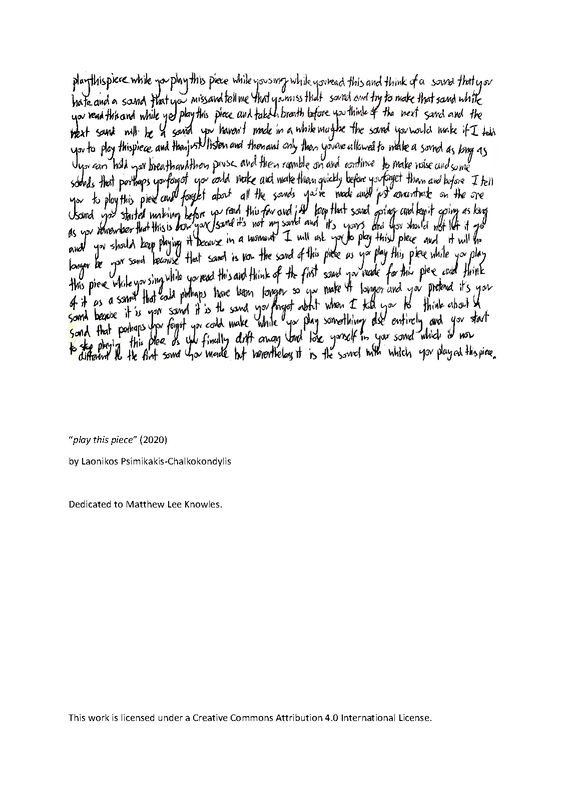 playthispiece while you play this piece while yousing while youread this and think of a sound that you
hate and a sound that you missand tell me that youmiss that sound and try to make that sound while
you read this and while you play this piece and take a breath before you think of the next sand and the
next sand will be a sound you haven't made in a while maybe the sound you would make if I told
you to play thispiece andthen just listen and then and only then you are allowed to make a sound as long as
you can hold your breath and then pause and then ramble on and continue to make noise and some
sounds that perhaps you forgot you could make and make them quickly before you forget them and before I tell
you to play this piece and forget about all the sounds you've made and just concentrate on the one
sound you started making before you read this far and just keep that sound going and keep it going as long
as you remember that this is now your sound it's not my sound and it's yours and you should not let it go
and you should keep playing it because in a moment I will ask you to play this piece and it will no
longer be your sound because that sound is now the sound of this piece as you play this piece while you play
this piece while you sing while you read this and think of the first sound you made for this piece and think
of it as a sound that could perhaps have been longer so you make it longer and you pretend it's your
sound because it is your sound it is the sound you forgot about when I told you to think about a
sound that perhaps you forgot you could make while you play something else entirely and you start
to stop playing this piece as you finally drift away and lose yourself in your sound which is now
different to the first sound you made but nevertheless it is the sound with which you played this piece.
“play this piece” (2020)
by Laonikos Psimikakis-Chalkokondylis
Dedicated to Matthew Lee Knowles.
This work is licensed under a Creative Commons Attribution 4.0 International License.